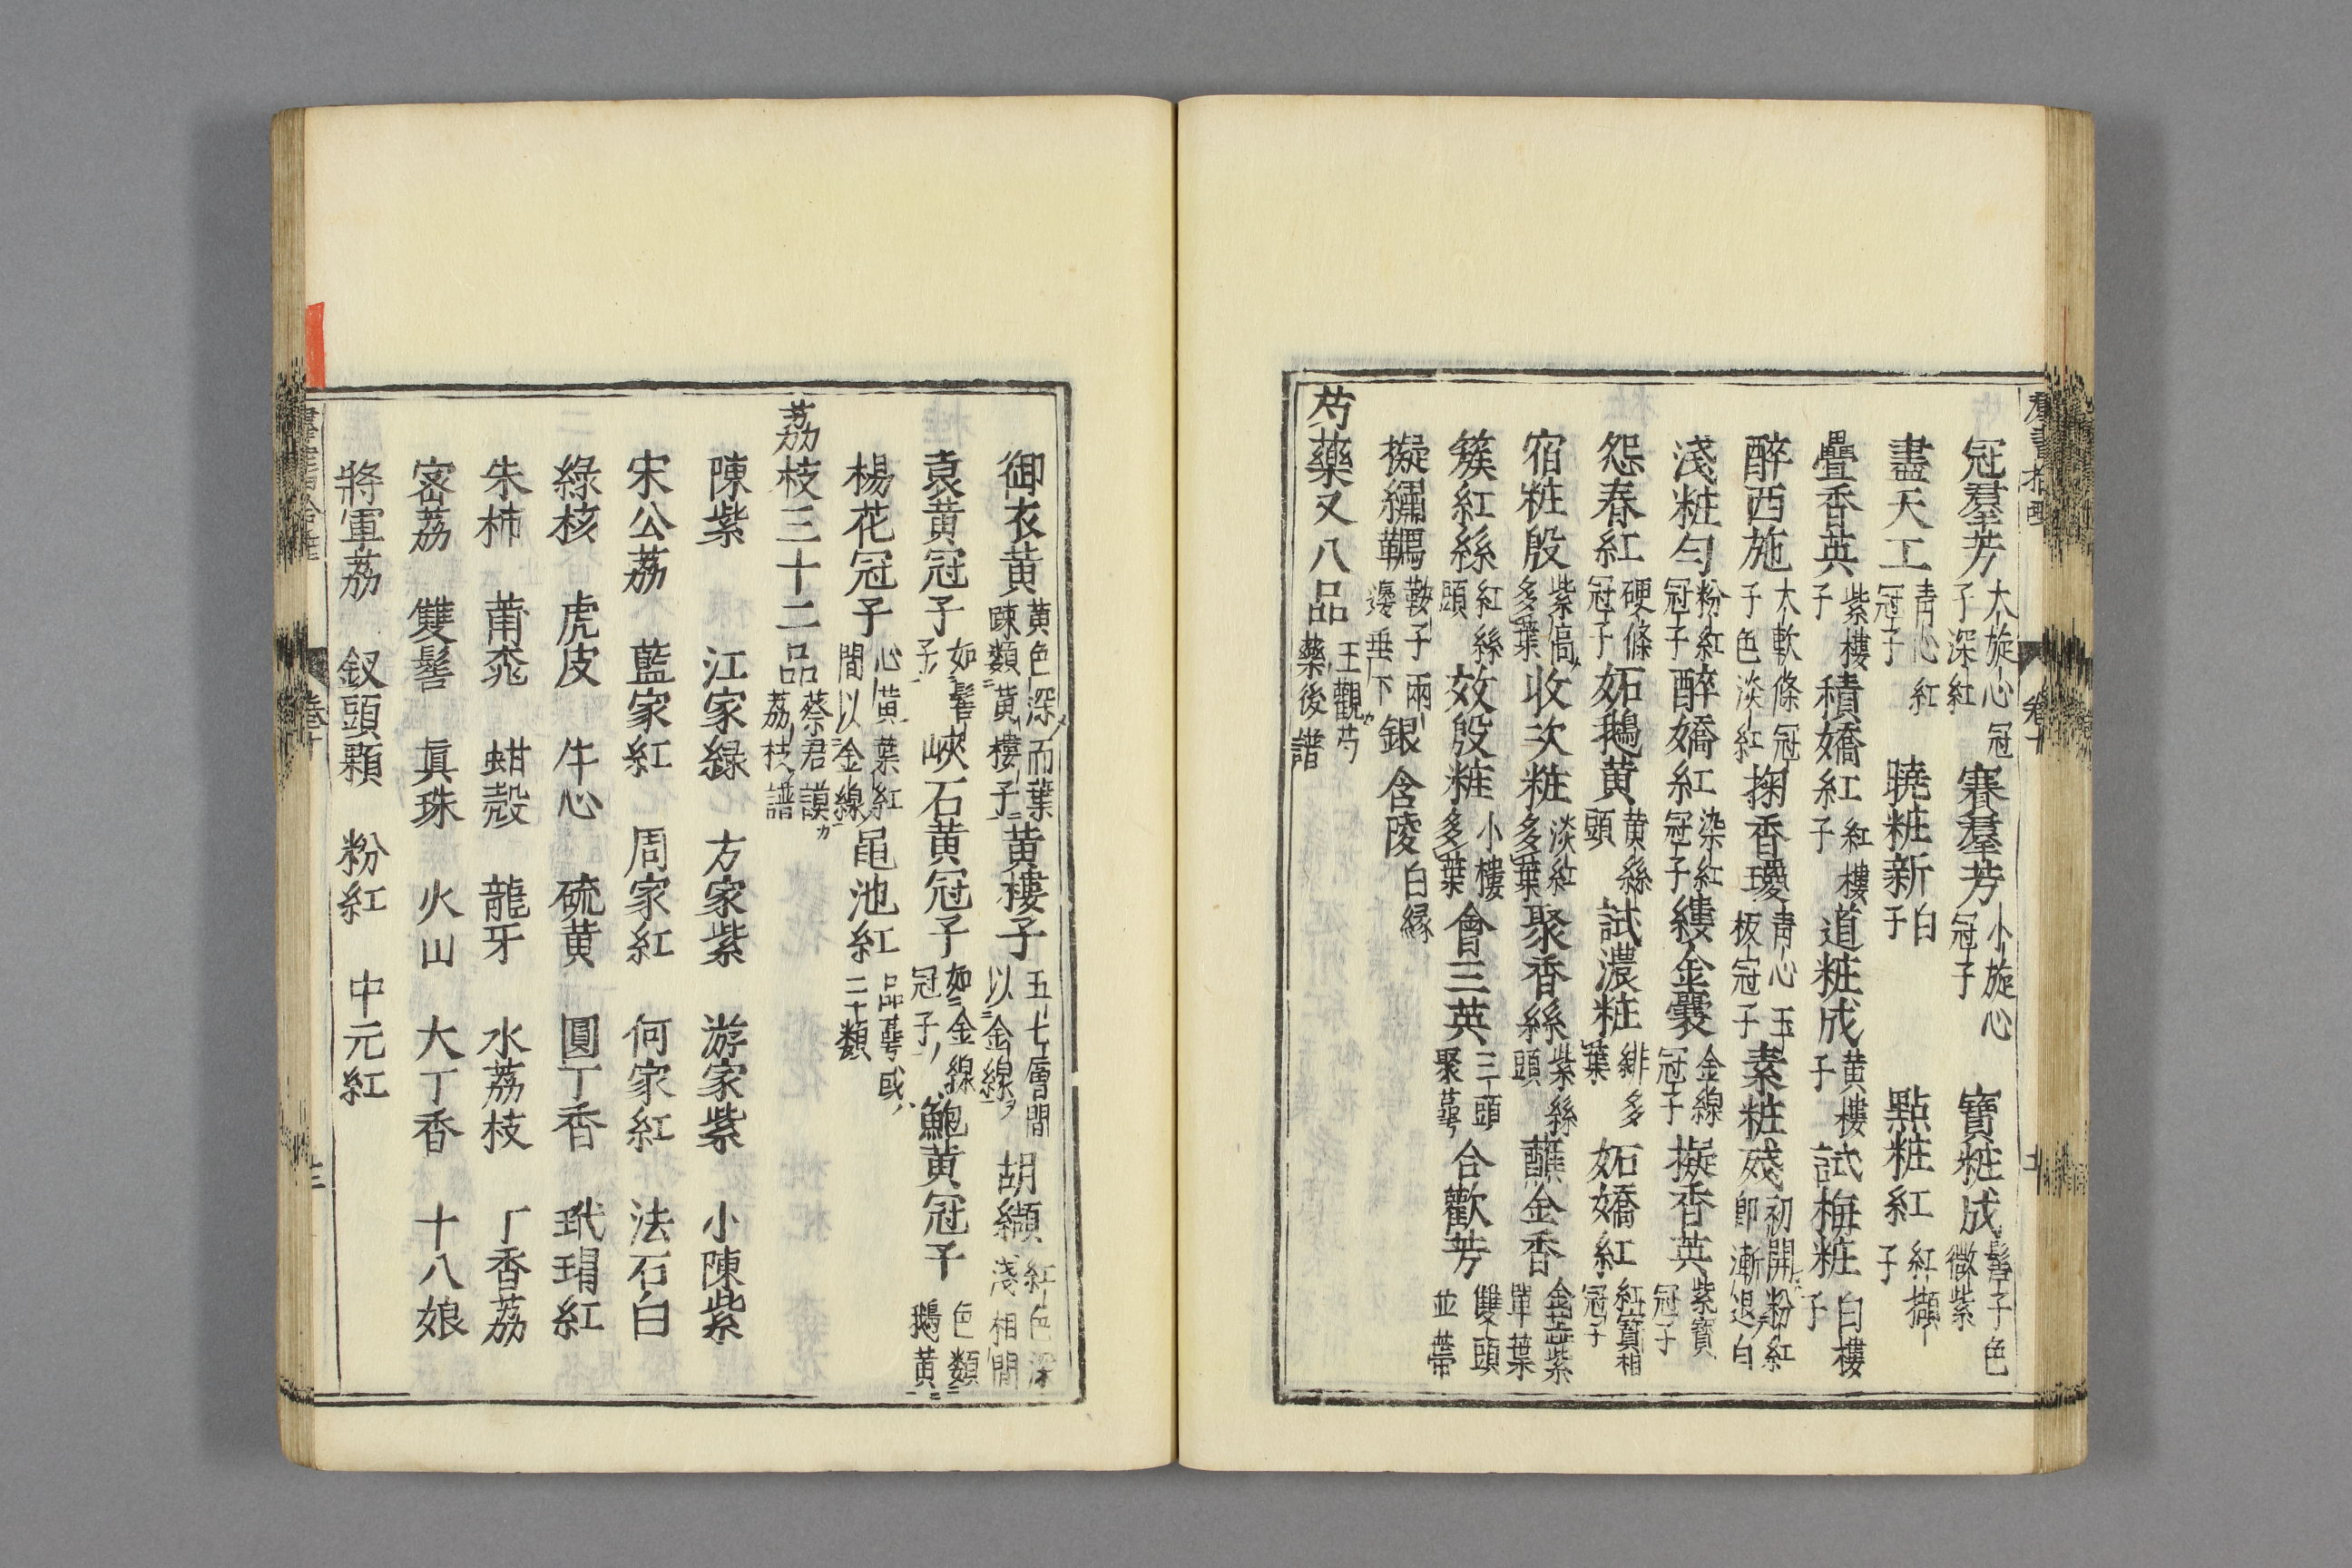 冠羣芳 大旋心冠子深紅 賽羣芳 小旋心冠子 寶粧成 髻子色微紫
盡天工 青心紅冠子 曉粧新 白子 點粧紅 紅擷子
疊香英 紫樓子 積嬌紅 紅樓子 道粧成 黄樓子 試梅粧 白樓子
醉西施 大軟條冠子色淡紅 掬香瓊 青心玉板冠子 素粧殘 初開粉紅即漸退白
淺粧勻 粉紅冠子 醉嬌紅 染紅冠子 縷金囊 金線冠子 擬香英 紫寶冠子
怨春紅 硬條冠子 妬鵝黄 黄絲頭 試濃粧 緋多葉 妬嬌紅 紅寶相冠子
宿粧殷 紫高多葉 收次粧 淡紅多葉 聚香絲 紫絲頭 蘸金香 金蘂紫單葉
簇紅絲 紅絲頭 效殷粧 小樓多葉 會三英 三頭聚萼 合歡芳 雙頭並蔕
擬繡韉 鞍子兩邊垂下 銀含陵 白縁
芍藥又八品 王觀芍藥後譜
御衣黄 黄色深而葉疎類黄樓子 黄樓子 五七層間以金線 胡纈 紅色深淺相間
袁黄冠子 如髻子 峽石黄冠子 如金線冠子 鮑黄冠子 色類鵝黄
楊花冠子 心黄葉紅間以金線 黽池紅 品萼或二十類
荔枝三十二品 蔡君謨荔枝譜
陳紫 江家緑 方家紫 游家紫 小陳紫
宋公荔 藍家紅 周家紅 何家紅 法石白
綠核 虎皮 牛心 硫黄 圓丁香 玳瑁紅
朱柿 蒲桃 蚶殻 龍牙 水荔枝 丁香荔
密荔 雙髻 眞珠 火山 大丁香 十八娘
將軍荔 釵頭顆 粉紅 中元紅